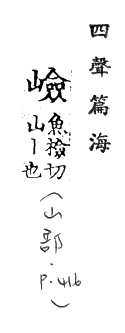 四聲篇海
嶮魚撿切
山丨也
(山部.
P.416)